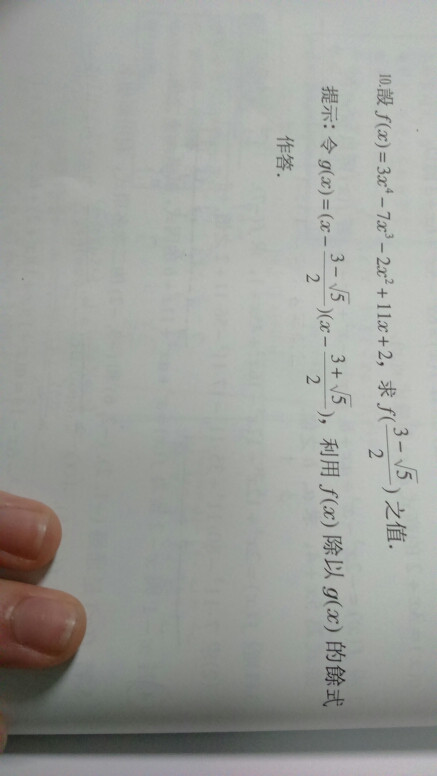 10.設 f(x)=3x⁴−7x³−2x²+11x+2，求 f(\frac{3−√5}{2}) 之值．
提示：令 g(x)=(x−\frac{3−√5}{2})(x−\frac{3+√5}{2})，利用 f(x) 除以 g(x) 的餘式
作答．